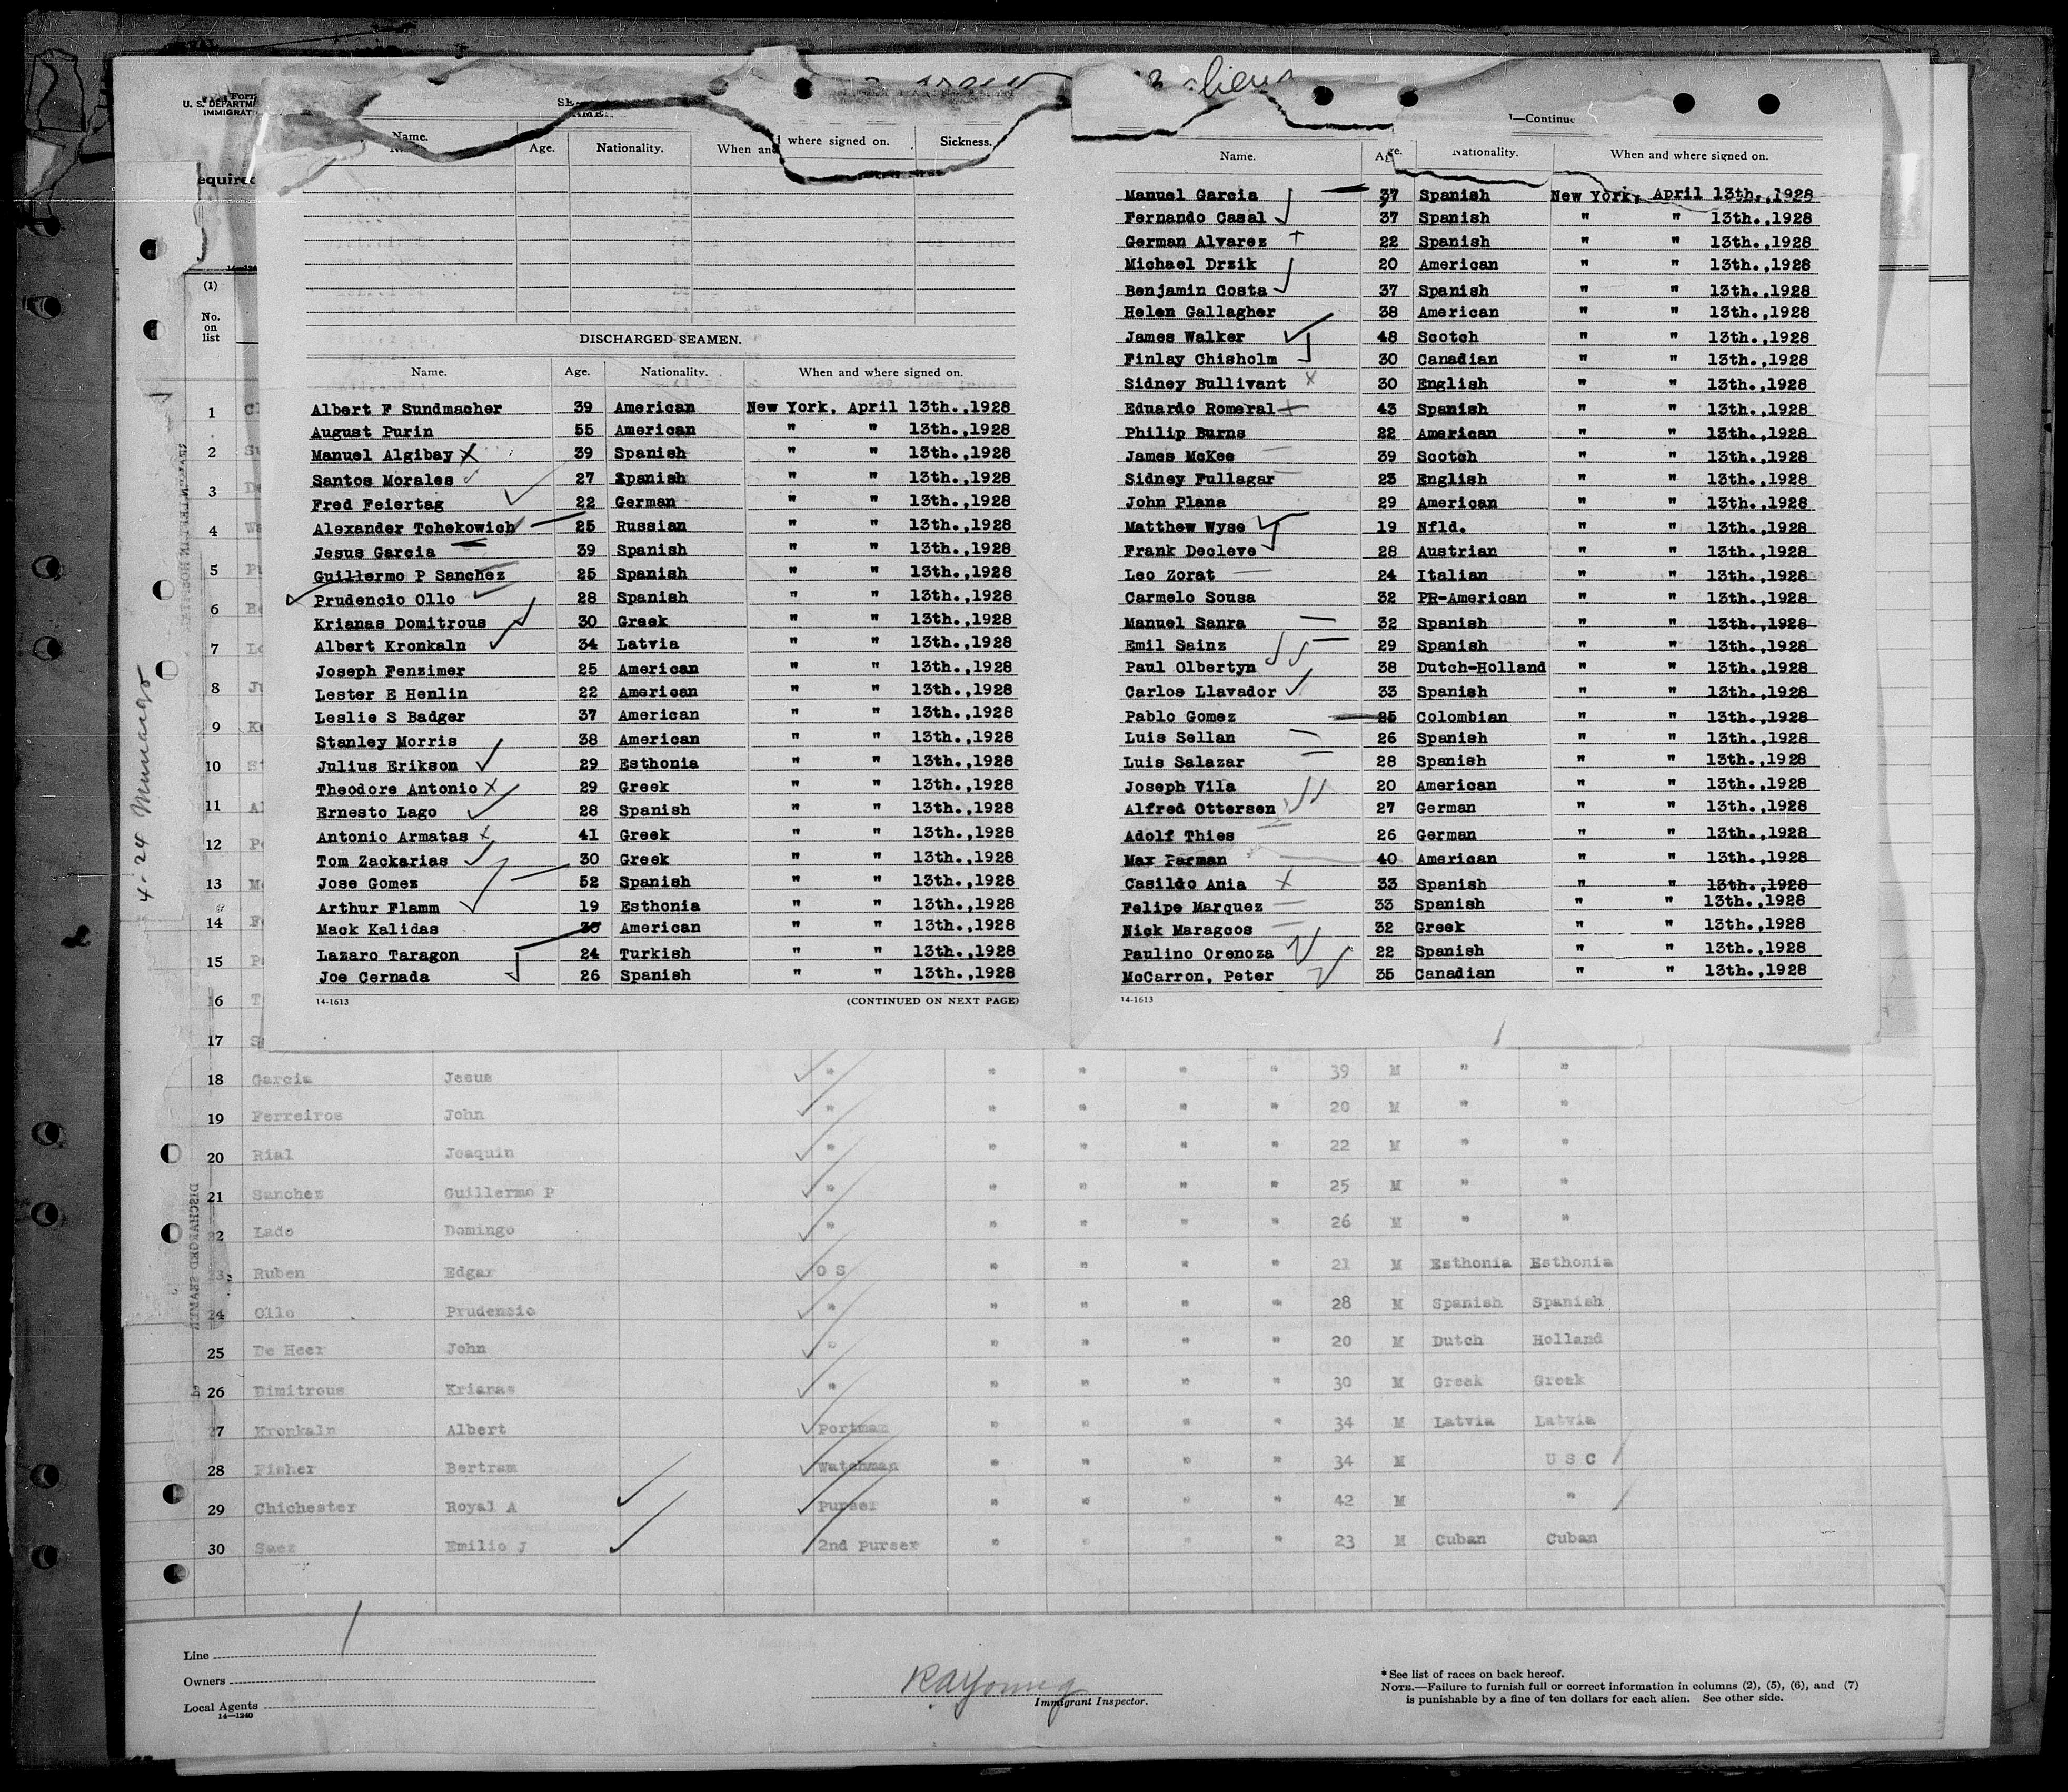 aliens
Form
U. S. DEPARTM
IMMIGRAT
equired
(1)
No.
on
list
4-24 Munargo
Name. Age. Nationality. When and where signed on. Sickness.
DISCHARGED SEAMEN.
Name. Age. Nationality. When and where signed on.
Albert F Sundmacher 39 American New York, April 13th.,1928
August Purin 55 American " " 13th.,1928
Manuel Algibay X 39 Spanish " " 13th.,1928
Santos Morales 27 Spanish " " 13th.,1928
Fred Feiertag 22 German " " 13th.,1928
Alexander Tchekowich 25 Russian " " 13th.,1928
Jesus Garcia 39 Spanish " " 13th.,1928
Guillermo P Sanchez 25 Spanish " " 13th.,1928
Prudencio Ollo 28 Spanish " " 13th.,1928
Krianas Domitrous 30 Greek " " 13th.,1928
Albert Kronkaln 34 Latvia " " 13th.,1928
Joseph Fenzimer 25 American " " 13th.,1928
Lester E Henlin 22 American " " 13th.,1928
Leslie S Badger 37 American " " 13th.,1928
Stanley Morris 38 American " " 13th.,1928
Julius Erikson 29 Esthonia " " 13th.,1928
Theodore Antonio X 29 Greek " " 13th.,1928
Ernesto Lago 28 Spanish " " 13th.,1928
Antonio Armatas 41 Greek " " 13th.,1928
Tom Zackarias 30 Greek " " 13th.,1928
Jose Gomez 52 Spanish " " 13th.,1928
Arthur Flamm 19 Esthonia " " 13th.,1928
Mack Kalidas American " " 13th.,1928
Lazaro Taragon 24 Turkish " " 13th.,1928
Joe Cernada 26 Spanish " " 13th.,1928
14-1613 (CONTINUED ON NEXT PAGE)
—Continue
Name. Age. Nationality. When and where signed on.
Manuel Garcia 37 Spanish New York, April 13th.,1928
Fernando Casal 37 Spanish " " 13th.,1928
German Alvarez 22 Spanish " " 13th.,1928
Michael Drzik 20 American " " 13th.,1928
Benjamin Costa 37 Spanish " " 13th.,1928
Helen Gallagher 38 American " " 13th.,1928
James Walker 48 Scotch " " 13th.,1928
Finlay Chisholm 30 Canadian " " 13th.,1928
Sidney Bullivant X 30 English " " 13th.,1928
Eduardo Romeral 43 Spanish " " 13th.,1928
Philip Burns 22 American " " 13th.,1928
James McKee 39 Scotch " " 13th.,1928
Sidney Fullagar 23 English " " 13th.,1928
John Plana 29 American " " 13th.,1928
Matthew Wyse 19 Nfld. " " 13th.,1928
Frank Decleve 28 Austrian " " 13th.,1928
Leo Zorat 24 Italian " " 13th.,1928
Carmelo Sousa 32 PR-American " " 13th.,1928
Manuel Sanra 32 Spanish " " 13th.,1928
Emil Sainz 29 Spanish " " 13th.,1928
Paul Olbertyn 38 Dutch-Holland " " 13th.,1928
Carlos Llavador 33 Spanish " " 13th.,1928
Pablo Gomez 25 Colombian " " 13th.,1928
Luis Sellan 26 Spanish " " 13th.,1928
Luis Salazar 28 Spanish " " 13th.,1928
Joseph Vila 20 American " " 13th.,1928
Alfred Ottersen 27 German " " 13th.,1928
Adolf Thies 26 German " " 13th.,1928
Max Parman 40 American " " 13th.,1928
Casildo Ania X 33 Spanish " " 13th.,1928
Felipe Marquez 33 Spanish " " 13th.,1928
Nick Maragcos 32 Greek " " 13th.,1928
Paulino Orenoza 22 Spanish " " 13th.,1928
McCarron, Peter 35 Canadian " " 13th.,1928
14-1613
1
2
3
4
5
6
7
8
9
10
11
12
13
14
15
16
17
18 Garcia Jesus " " " " " 39 M " "
19 Ferreiros John " " " " " 20 M " "
20 Rial Joaquin " " " " " 22 M " "
21 Sanchez Guillermo P " " " " " 25 M " "
22 Lado Domingo " " " " " 26 M " "
23 Ruben Edgar O S " " " " 21 M Esthonia Esthonia
24 Ollo Prudencio " " " " " 28 M Spanish Spanish
25 De Heer John " " " " " 20 M Dutch Holland
26 Dimitrous Krianas " " " " " 30 M Greek Greek
27 Kronkaln Albert Portman " " " " 34 M Latvia Latvia
28 Fisher Bertram Watchman " " " " 34 M U S C
29 Chichester Royal A Purser " " " " 42 M "
30 Saez Emilio J 2nd Purser " " " " 23 M Cuban Cuban
DISCHARGED SEAMEN
Line
Owners
Local Agents
14—1240
RAYoung
Immigrant Inspector.
* See list of races on back hereof.
NOTE.—Failure to furnish full or correct information in columns (2), (5), (6), and (7)
is punishable by a fine of ten dollars for each alien. See other side.